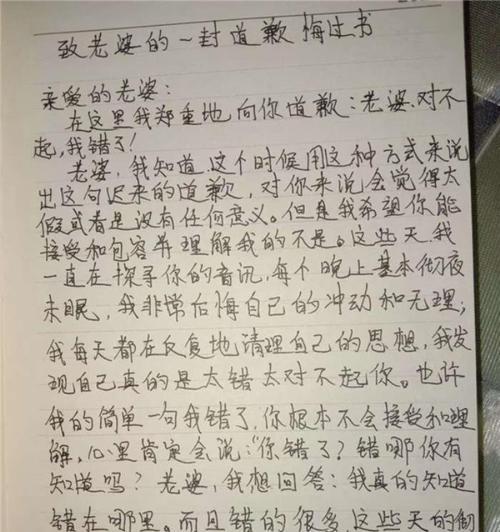 致老婆的一封道歉悔过书
亲爱的老婆:
在这里我郑重地向你道歉:老婆.对不
起,我错了!
老婆,我知道.这个时候用这种方式来说
出这句迟来的道歉,对你来说会觉得太
假或者是没有任何意义。但是我希望你能
接受和包容并理解我的不是。这些天.我
一直在探寻你的音讯,每个晚上基本彻夜
未眠,我非常后悔自己的冲动和无理;
我每天都在反复地清理自己的思想,我发
现自己真的是太错太对不起你。也许
我的简单一句我错了,你根本不会接受和理
解,心里肯定会说:“你错了?错哪你有
知道吗?老婆,我想回答:我真的知道
错在哪里。而且错的很多.这些天的彻